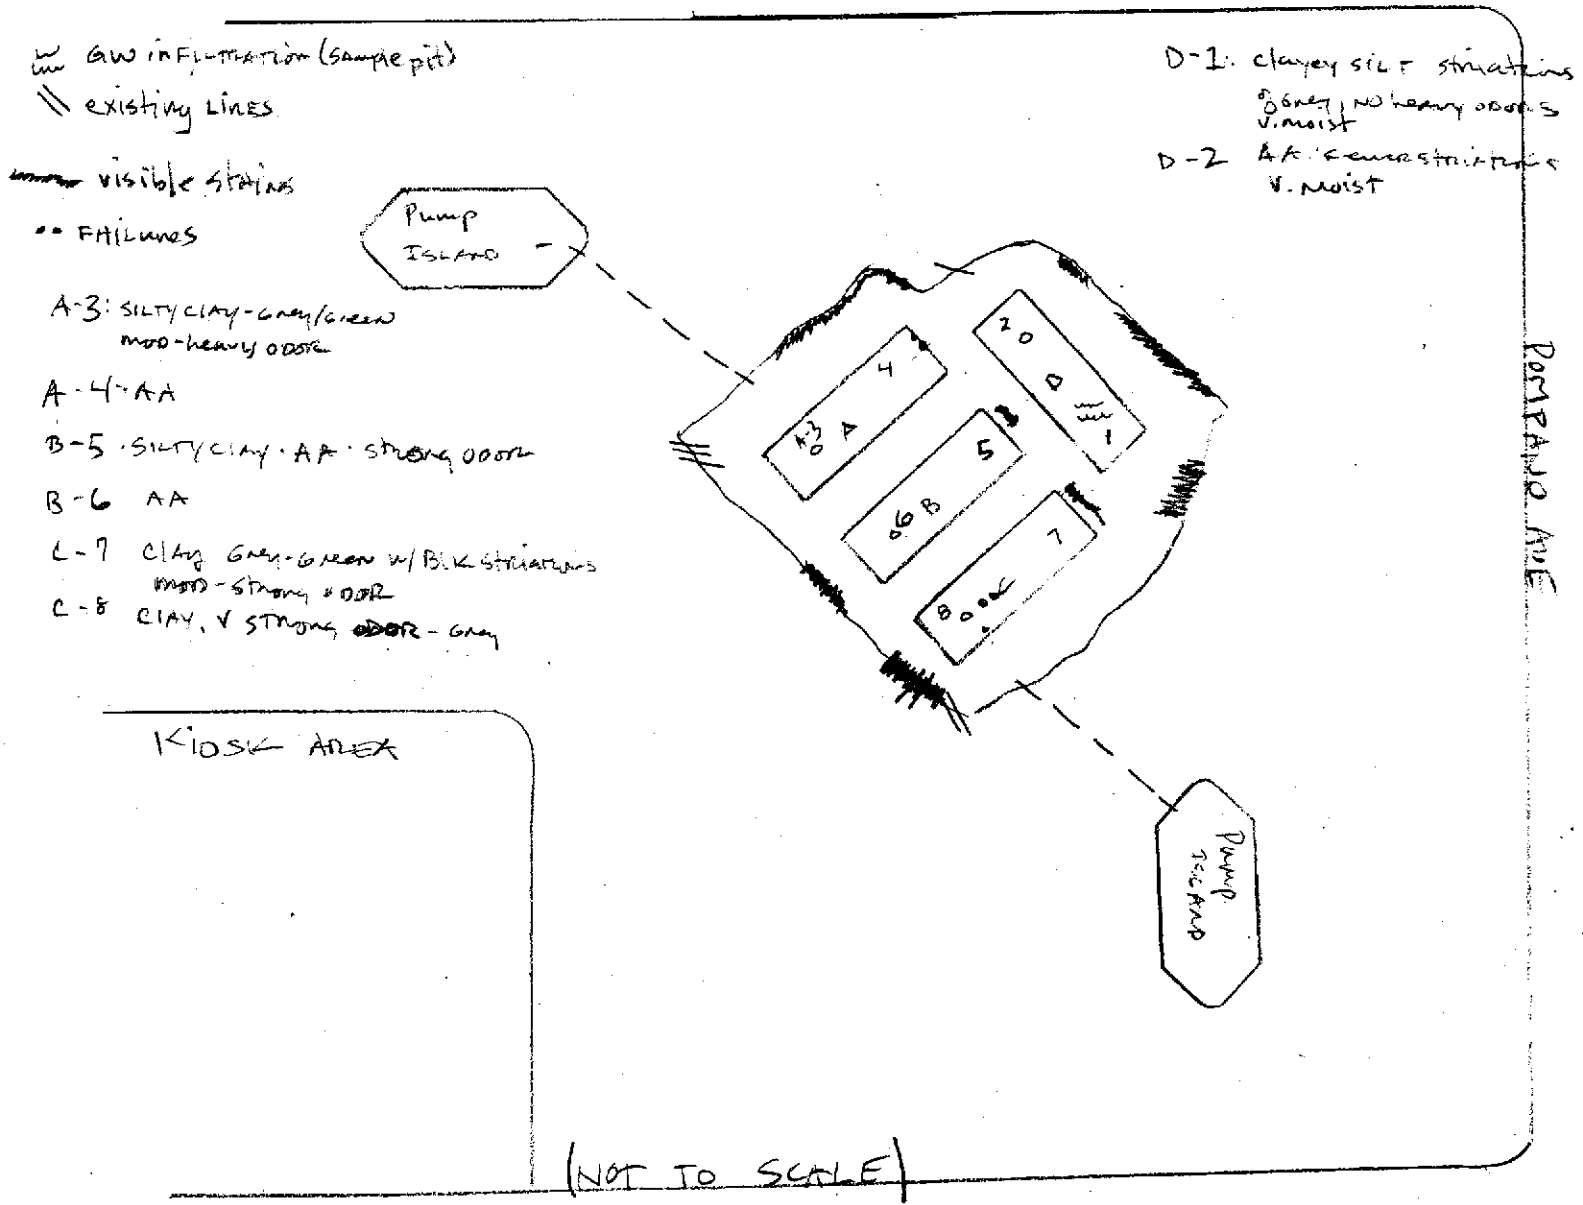 GW inFiLTRATion (Sample pit)
existing LINES
visible Stains
•• FAILURES
A-3: SILTY CLAY-Grey/Green
MOD-heavy ODOR
A-4-AA
B-5 · SILTY CLAY · AA · strong ODOR
B-6 AA
C-7 ClAy Grey-Green w/ BLK striations
MOD-Strong ODOR
C-8 CLAY, V STrong ODOR-Grey
D-1: clayey SILT striations
of Grey, NO heavy ODORS
V. moist
D-2 AA striations
V. MOIST
Pump
ISLAND
4
A-3
A
2
D
1
5
6 B
7
8
C
POMPANO AVE
KIOSK AREA
Pump
ISLAND
(NOT TO SCALE)